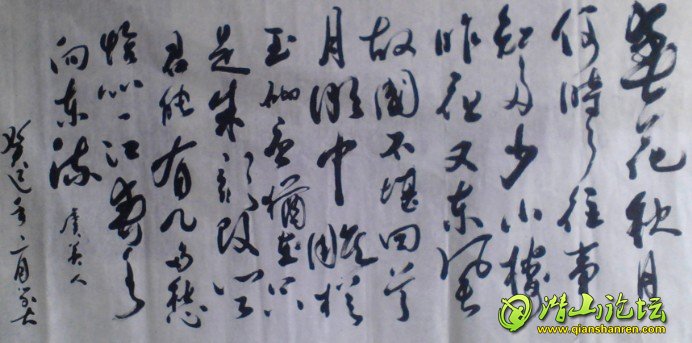 春花秋月
何時了往事
知多少小樓
昨夜又东風
故國不堪回首
月明中雕栏
玉砌应猶在只
是朱颜改问
君能有几多愁
恰似一江春水
向东流 虞美人
癸巳年二月
潜山论坛
www.qianshanren.com